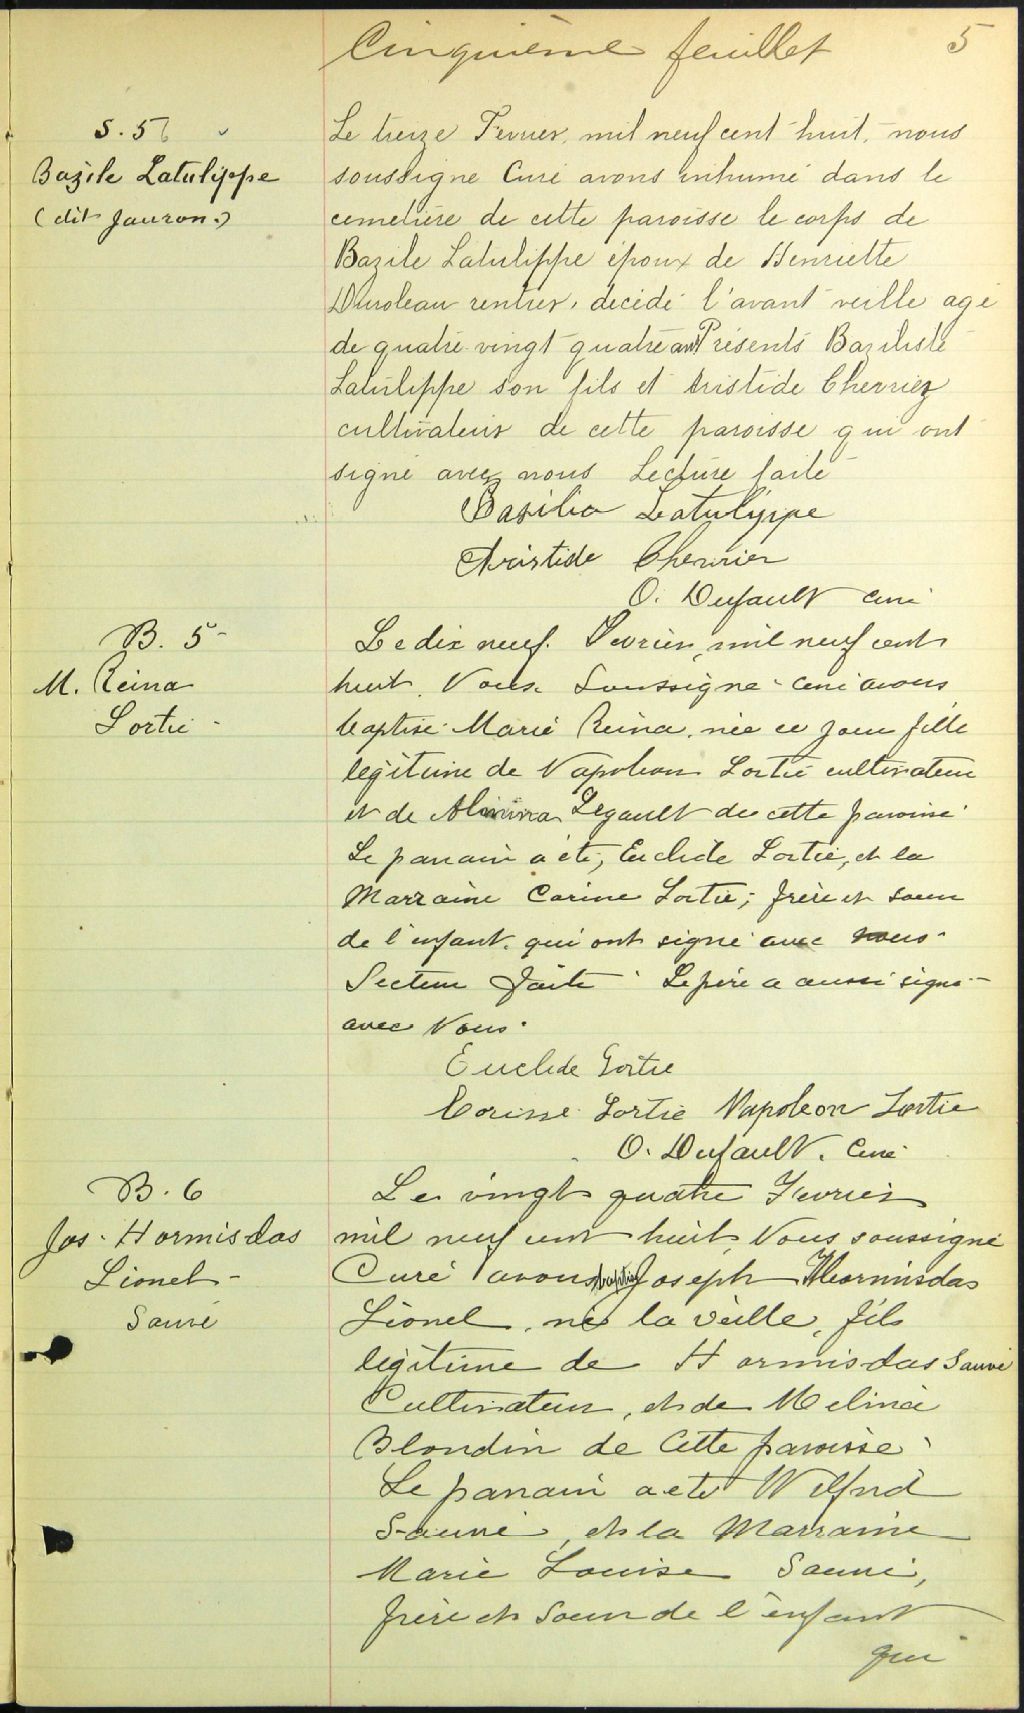 Cinquième feuillet 5
S. 5
Bazile Latulippe
(dit Jauron.)
Le treize Fevrier, mil neuf cent huit, nous
soussigne Curé avons inhumé dans le
cemetière de cette paroisse le corps de
Bazile Latulippe époux de Henriette
rentier, décédé l'avant veille agé
de quatre-vingt quatre ans Présents Baziliste
Latulippe son fils et Aristide Cherriez
cultivateur de cette paroisse qui ont
signé avec nous Lecture faite
Basilio Latulippe
Aristide Cherrier
O. Dufault curé
B. 5
M. Reina
Lortie
Le dix neuf Fevrier, mil neuf cent
huit, Nous Soussigné curé avons
baptisé Marie Reina, née ce jour fille
légitime de Napoleon Lortie cultivateur
et de Legault de cette paroisse
Le parrain a été, Euclide Lortie, et la
Marraine Corine Lortie; frère et soeur
de l'enfant qui ont signé avec nous
Lecture faite Le père a aussi signé
avec Nous.
Euclide Lortie
Corinne Lortie Napoleon Lortie
O. Dufault. Curé
B. 6
Jos. Hormisdas
Lionel
Sauvé
Le vingt quatre Fevrier
mil neuf cent huit, Nous soussigné
Curé avons baptisé Joseph Hormisdas
Lionel, né la veille, fils
légitime de Hormisdas Sauvé
Cultivateur, et de Melina
Blondin de Cette paroisse.
Le parrain a été Wilfrid
Sauvé, et la Marraine
Marie Louise Sauvé,
frère et Soeur de l'enfant
qui